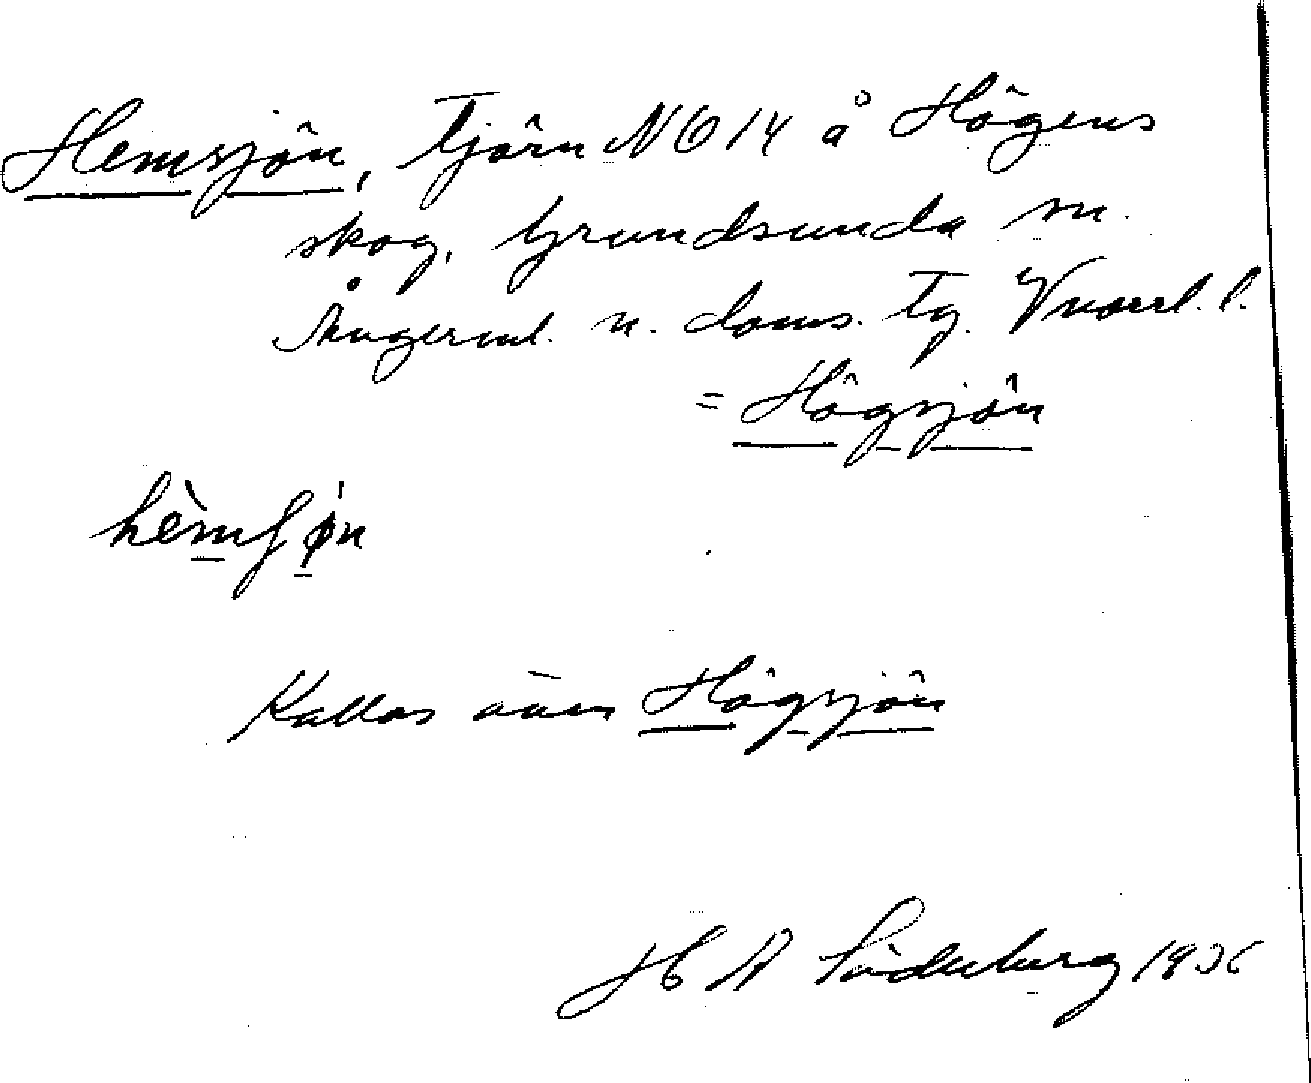 Hemsjön, Tjärn NO 14 å Högens
skog, Grundsunda sn.
Ångerml. n. doms. tg. Vnorrl. l.
= Högsjön
hèmʃøn
Kallas även Högsjön
H A Söderberg 1936